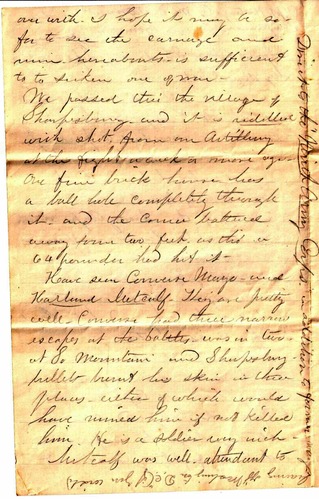 over with. I hope it may be so
for to see the carnage and
ruin hereabouts is sufficient
to to sicken one of war —
We passed thro the village of
Sharpsburg and it is riddled
with shot, from our Artillery
at the fight a week or more ago.
One fine brick house has
a ball hole complete through
it. and the corner battered
away some two feet. as tho a
64 pounder had hit it —
Have seen Converse Mayo and
Harland Metcalf. They are pretty
well. Converse had three narrow
escapes at the battles. was in two.
at So Mountain and Sharpsburg
bullets burnt his skin in three
places. either of which would
have ruined him if not killed
him. He is a soldier very much
Metcalf was well. attendant to